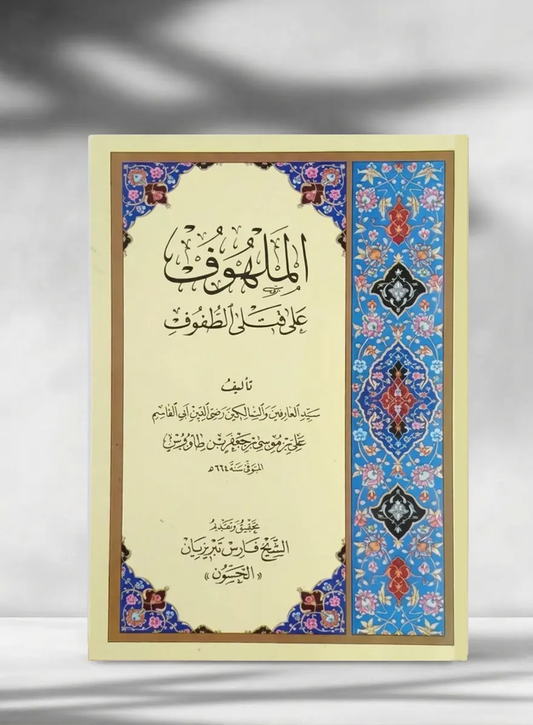 المَلْهُوفُ
عَلىٰ قَتْلَى الطُّفُوفِ
تأليفُ
سَيِّدِ العَارِفينَ وَالسَّالِكِينَ رَضِيِّ الدِّينِ أبي القَاسِمِ
عَلي بْنِ مُوسىٰ بْنِ جَعْفَرِ بْنِ طَاوُوسٍ
المتوفىٰ سَنَة ٦٦٤ هـ
تحقيقُ وَتقديمُ
الشَّيخ فَارِس تَبريزِيَان
« الحَسُّون »